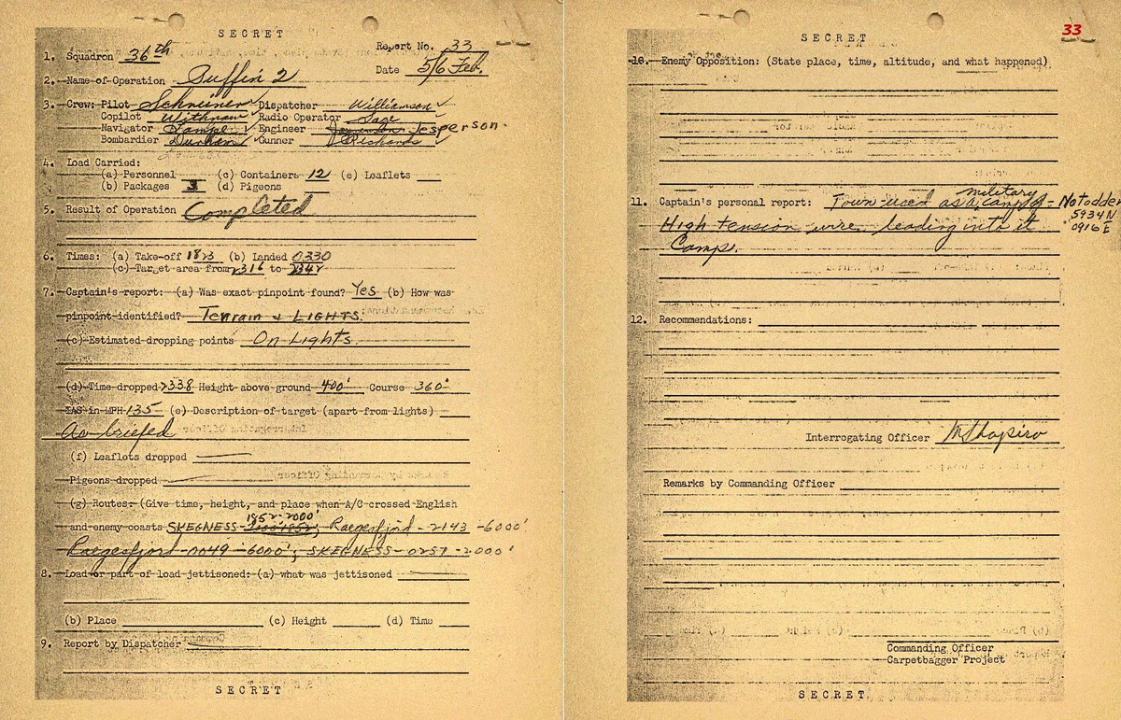 SECRET
1. Squadron 36th Report No. 33
Date 5/6 Feb.
2. Name of Operation Puffin 2
3. Crew: Pilot Schreiner Dispatcher Williamson
Copilot Withrow Radio Operator Sage
Navigator Engineer Jesperson.
Bombardier Durham Gunner Richards
4. Load Carried:
(a) Personnel (c) Containers 12 (e) Leaflets
(b) Packages 3 (d) Pigeons
5. Result of Operation Completed
6. Times: (a) Take-off 1823 (b) Landed 0330
(c) Target area from 2316 to 2342
7. Captain's report: (a) Was exact pinpoint found? Yes (b) How was
pinpoint identified? Terrain & LIGHTS.
(c) Estimated dropping points On Lights.
(d) Time dropped 2338 Height above ground 400' Course 360°
IAS in MPH 135 (e) Description of target (apart from lights)
As briefed
(f) Leaflets dropped
Pigeons dropped
(g) Routes: (Give time, height, and place when A/C crossed English
1852-2000'
and enemy coasts SKEGNESS- ; Raegesfjord - 2143 -6000'
Raegesfjord -0049 -6000'; SKEGNESS- 0257 -2000'
8. Load or part of load jettisoned: (a) what was jettisoned
(b) Place (c) Height (d) Time
9. Report by Dispatcher
SECRET
SECRET
33
10. Enemy Opposition: (State place, time, altitude, and what happened)
military
11. Captain's personal report: Town used as a camp - Notodden
5934N
0916E
High tension wire leading into it
Camp.
12. Recommendations:
Interrogating Officer M Shapiro
Remarks by Commanding Officer
Commanding Officer
Carpetbagger Project
SECRET